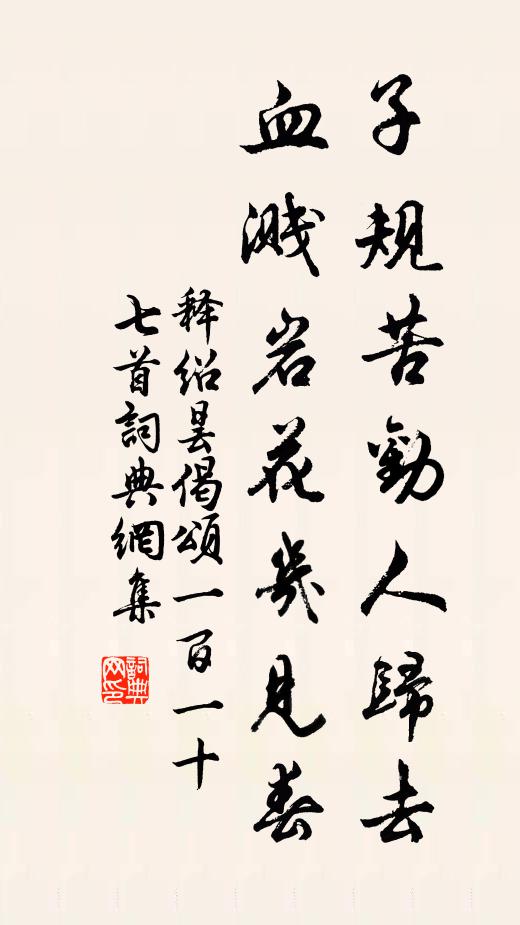 子規苦勸人歸去
血濺岩花幾見春
釋紹曇偈頌一百一十
七首詞典網集
詞典网印